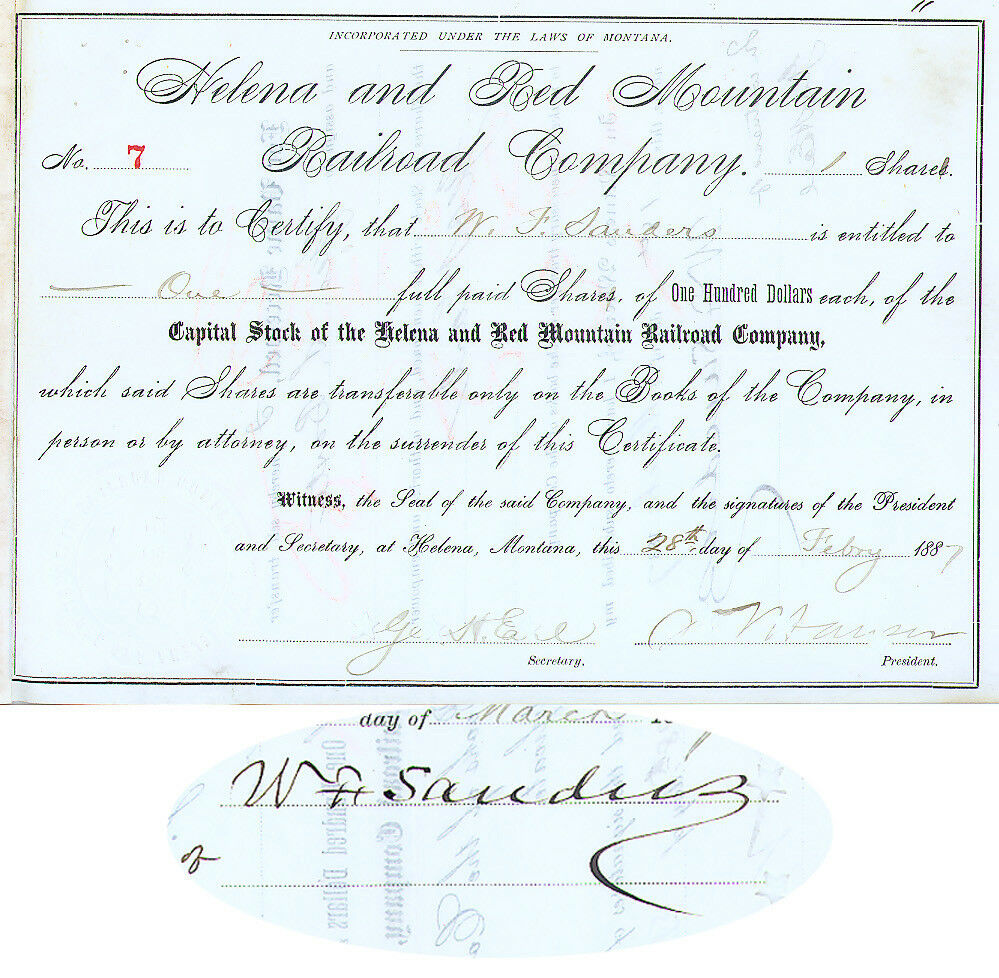 INCORPORATED UNDER THE LAWS OF MONTANA.
Helena and Red Mountain
No. 7 Railroad Company. 1 Share
This is to Certify, that W. F. Sanders is entitled to
One full paid Shares, of One Hundred Dollars each, of the
Capital Stock of the Helena and Red Mountain Railroad Company,
which said Shares are transferable only on the Books of the Company, in
person or by attorney, on the surrender of this Certificate.
Witness, the Seal of the said Company, and the signatures of the President
and Secretary, at Helena, Montana, this 28th day of Febry 1887
Secretary. President.
day of March
W F Sanders
of